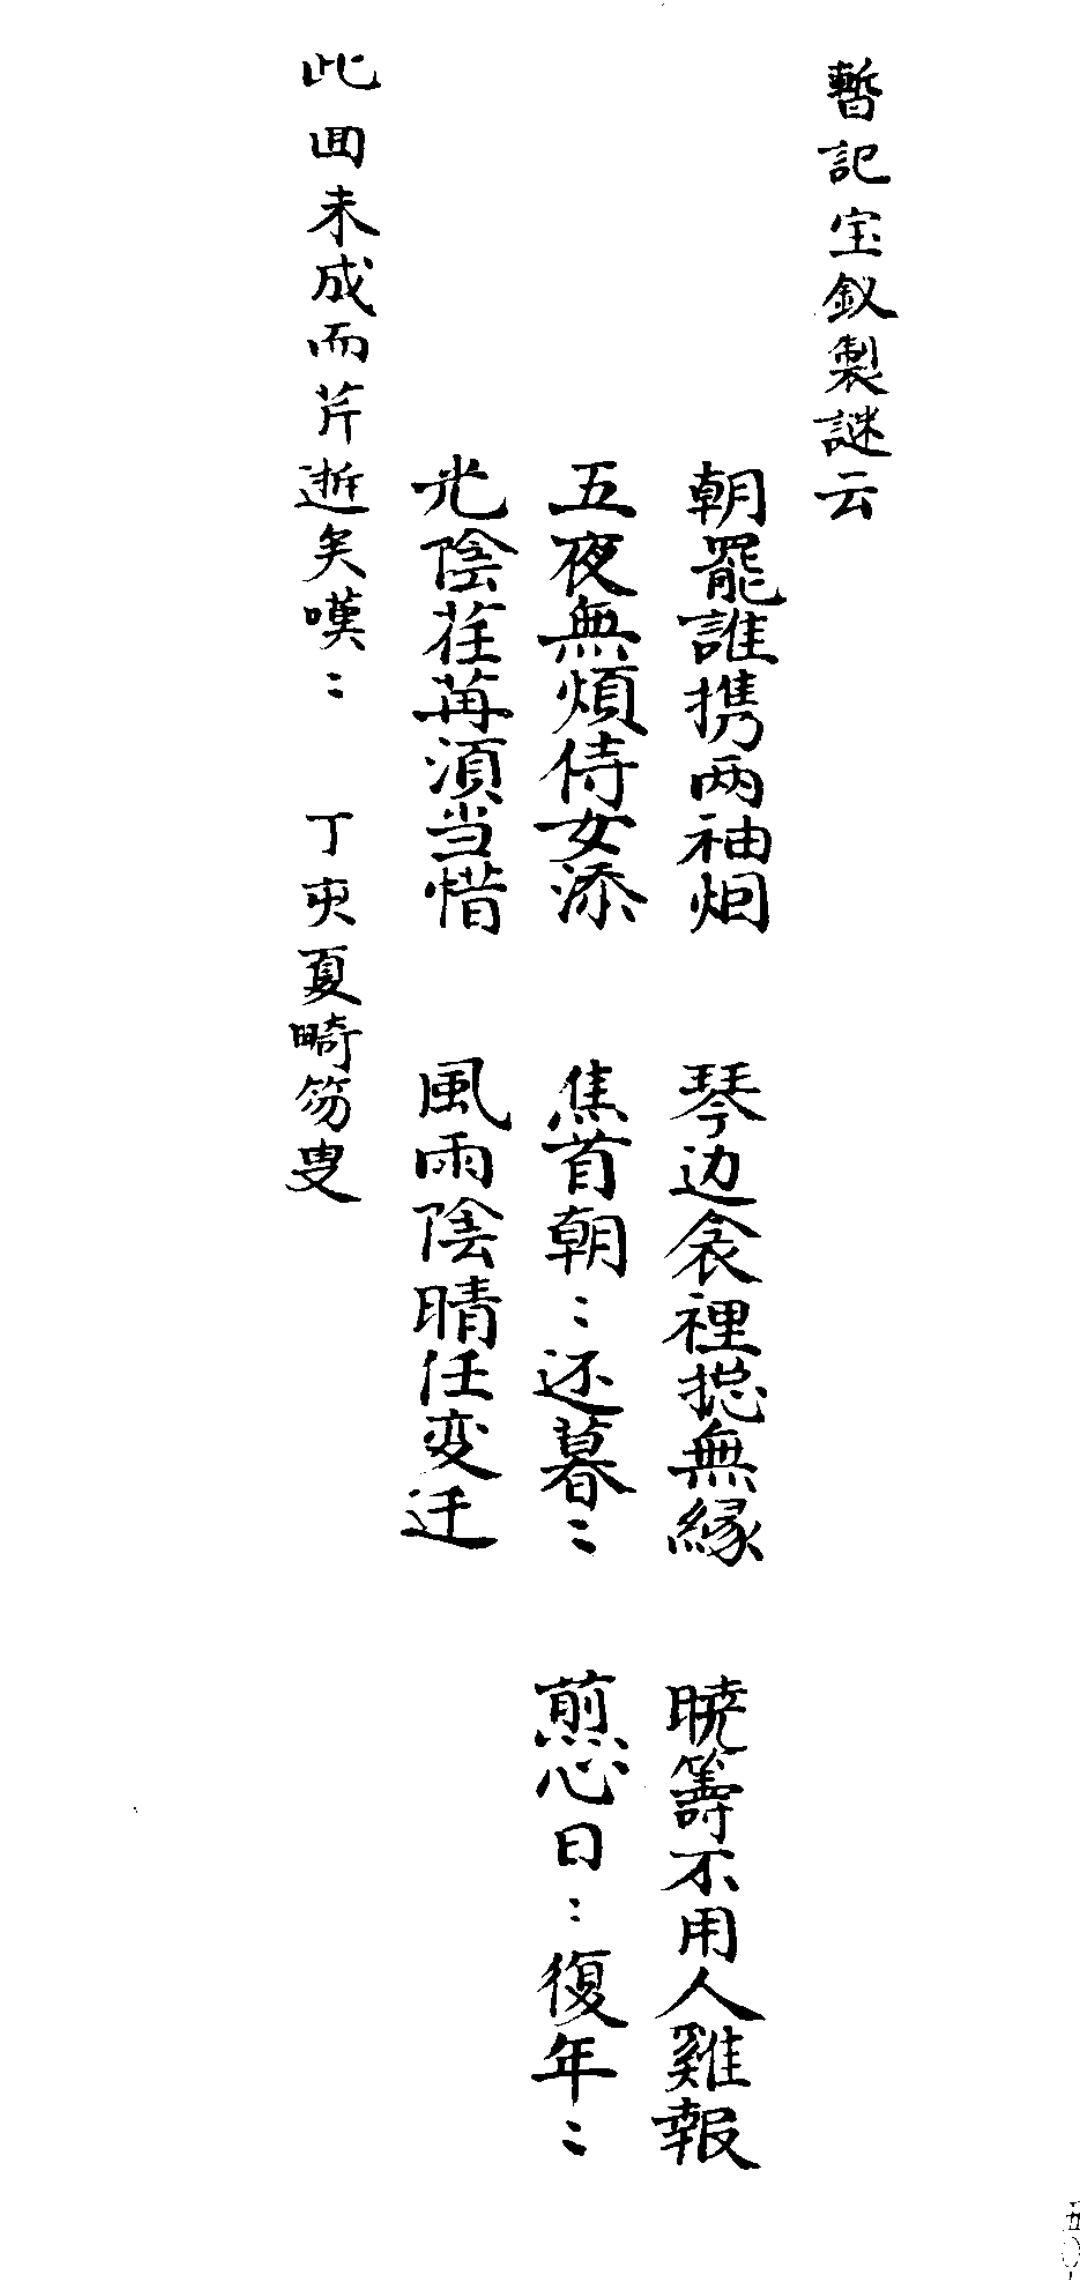 暫記宝釵製謎云
朝罷誰携両袖烟　琴边衾裡揔無縁　暁籌不用人雞報
五夜無煩侍女添　焦首朝〻还暮〻　煎心日〻復年〻
光陰荏苒湏当惜　風雨陰晴任变迁
此囬未成而芹逝矣嘆〻　丁亥夏畸笏叟